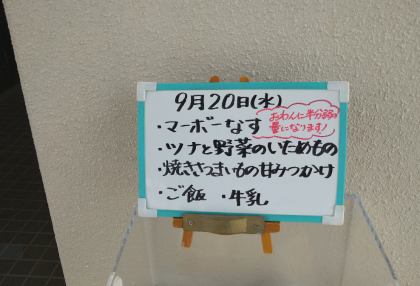 9月20日(水)
・マーボーなす
おわんに半分弱の
量になります!
・ツナと野菜のいためもの
・焼きさつまいもの甘みつかけ
・ご飯 ・牛乳